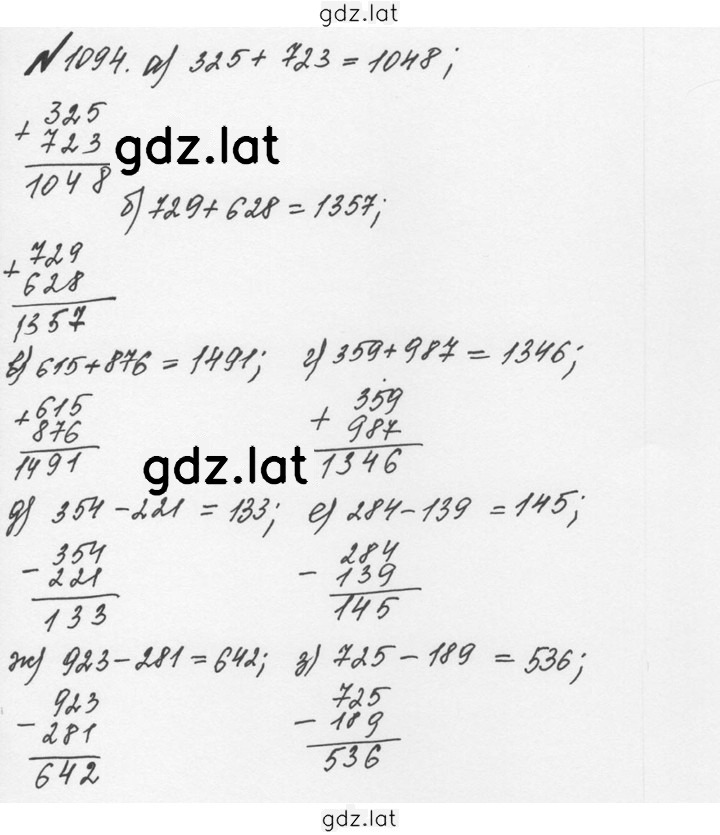 gdz.lat
№1094. а) 325 + 723 = 1048;
+ 325
723
1048
gdz.lat
б) 729 + 628 = 1357;
+ 729
628
1357
в) 615 + 876 = 1491; г) 359 + 987 = 1346;
+ 615
876
1491
+ 359
987
1346
gdz.lat
д) 354 - 221 = 133; е) 284 - 139 = 145;
- 354
221
133
- 284
139
145
ж) 923 - 281 = 642; з) 725 - 189 = 536;
- 923
281
642
- 725
189
536
gdz.lat